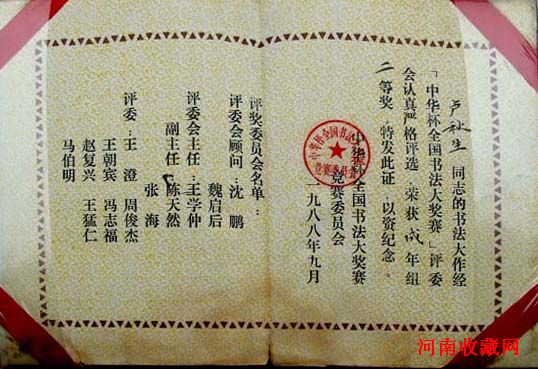 卢秋生 同志的书法大作经
「中华杯全国书法大奖赛」评委
会认真严格评选，荣获成年组
二等奖，特发此证，以资纪念。
中华杯全国书法大奖赛
竞赛委员会
一九八八年九月
评奖委员会名单：
评委会顾问：沈 鹏
魏启后
评委会主任：王学仲
副主任：陈天然
张 海
评委：王 澄 周俊杰
王朝宾 冯志福
赵复兴 王猛仁
马伯明
河南收藏网